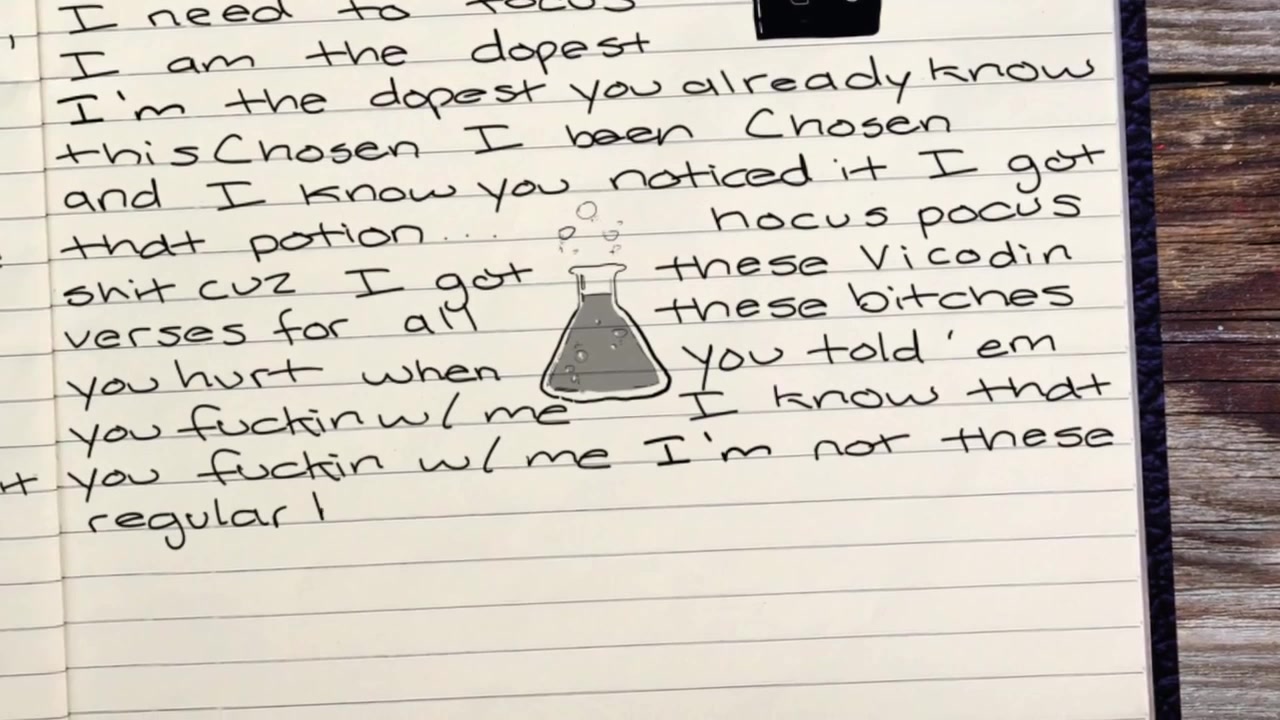 I need to focus
I am the dopest
I'm the dopest you already know
this Chosen I been Chosen
and I know you noticed it I got
that potion... hocus pocus
shit cuz I got these Vicodin
verses for all these bitches
you hurt when you told 'em
you fuckin w/ me I know that
you fuckin w/ me I'm not these
regular